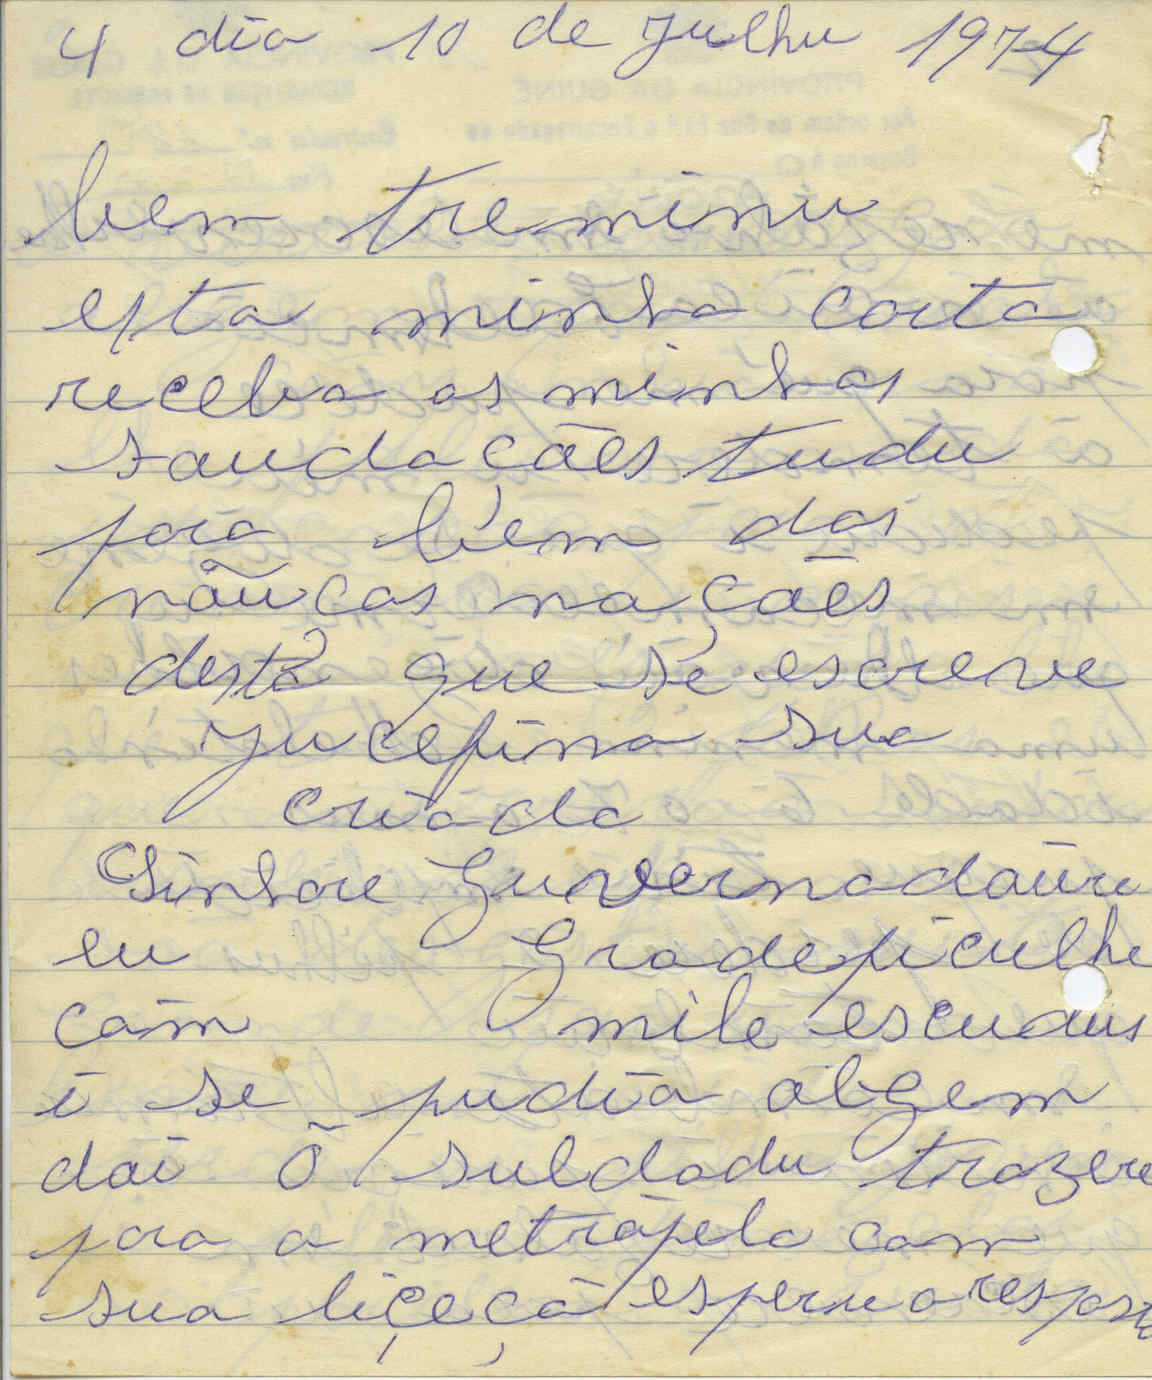 4 dia 10 de Julhu 1974
bem treminu
esta minha carta
receba as minhas
saudaçães tudu
para bem das
nãuças naçães
desta que se escreve
Jucefina sua
criada
Sinhore Guvernadaure
eu Gradeficulhe
cam mile escudus
i se pudia algem
dai Õ suldadu trazere
para a metrapela cam
sua liçeçã esperu a resposta